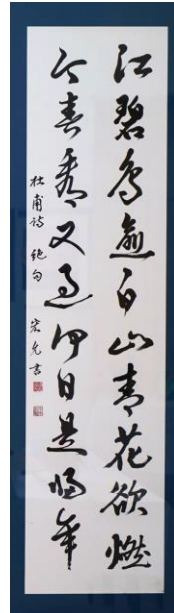 江碧鳥逾白山青花欲燃
今春看又過何日是歸年
杜甫詩 絕句 宏允書